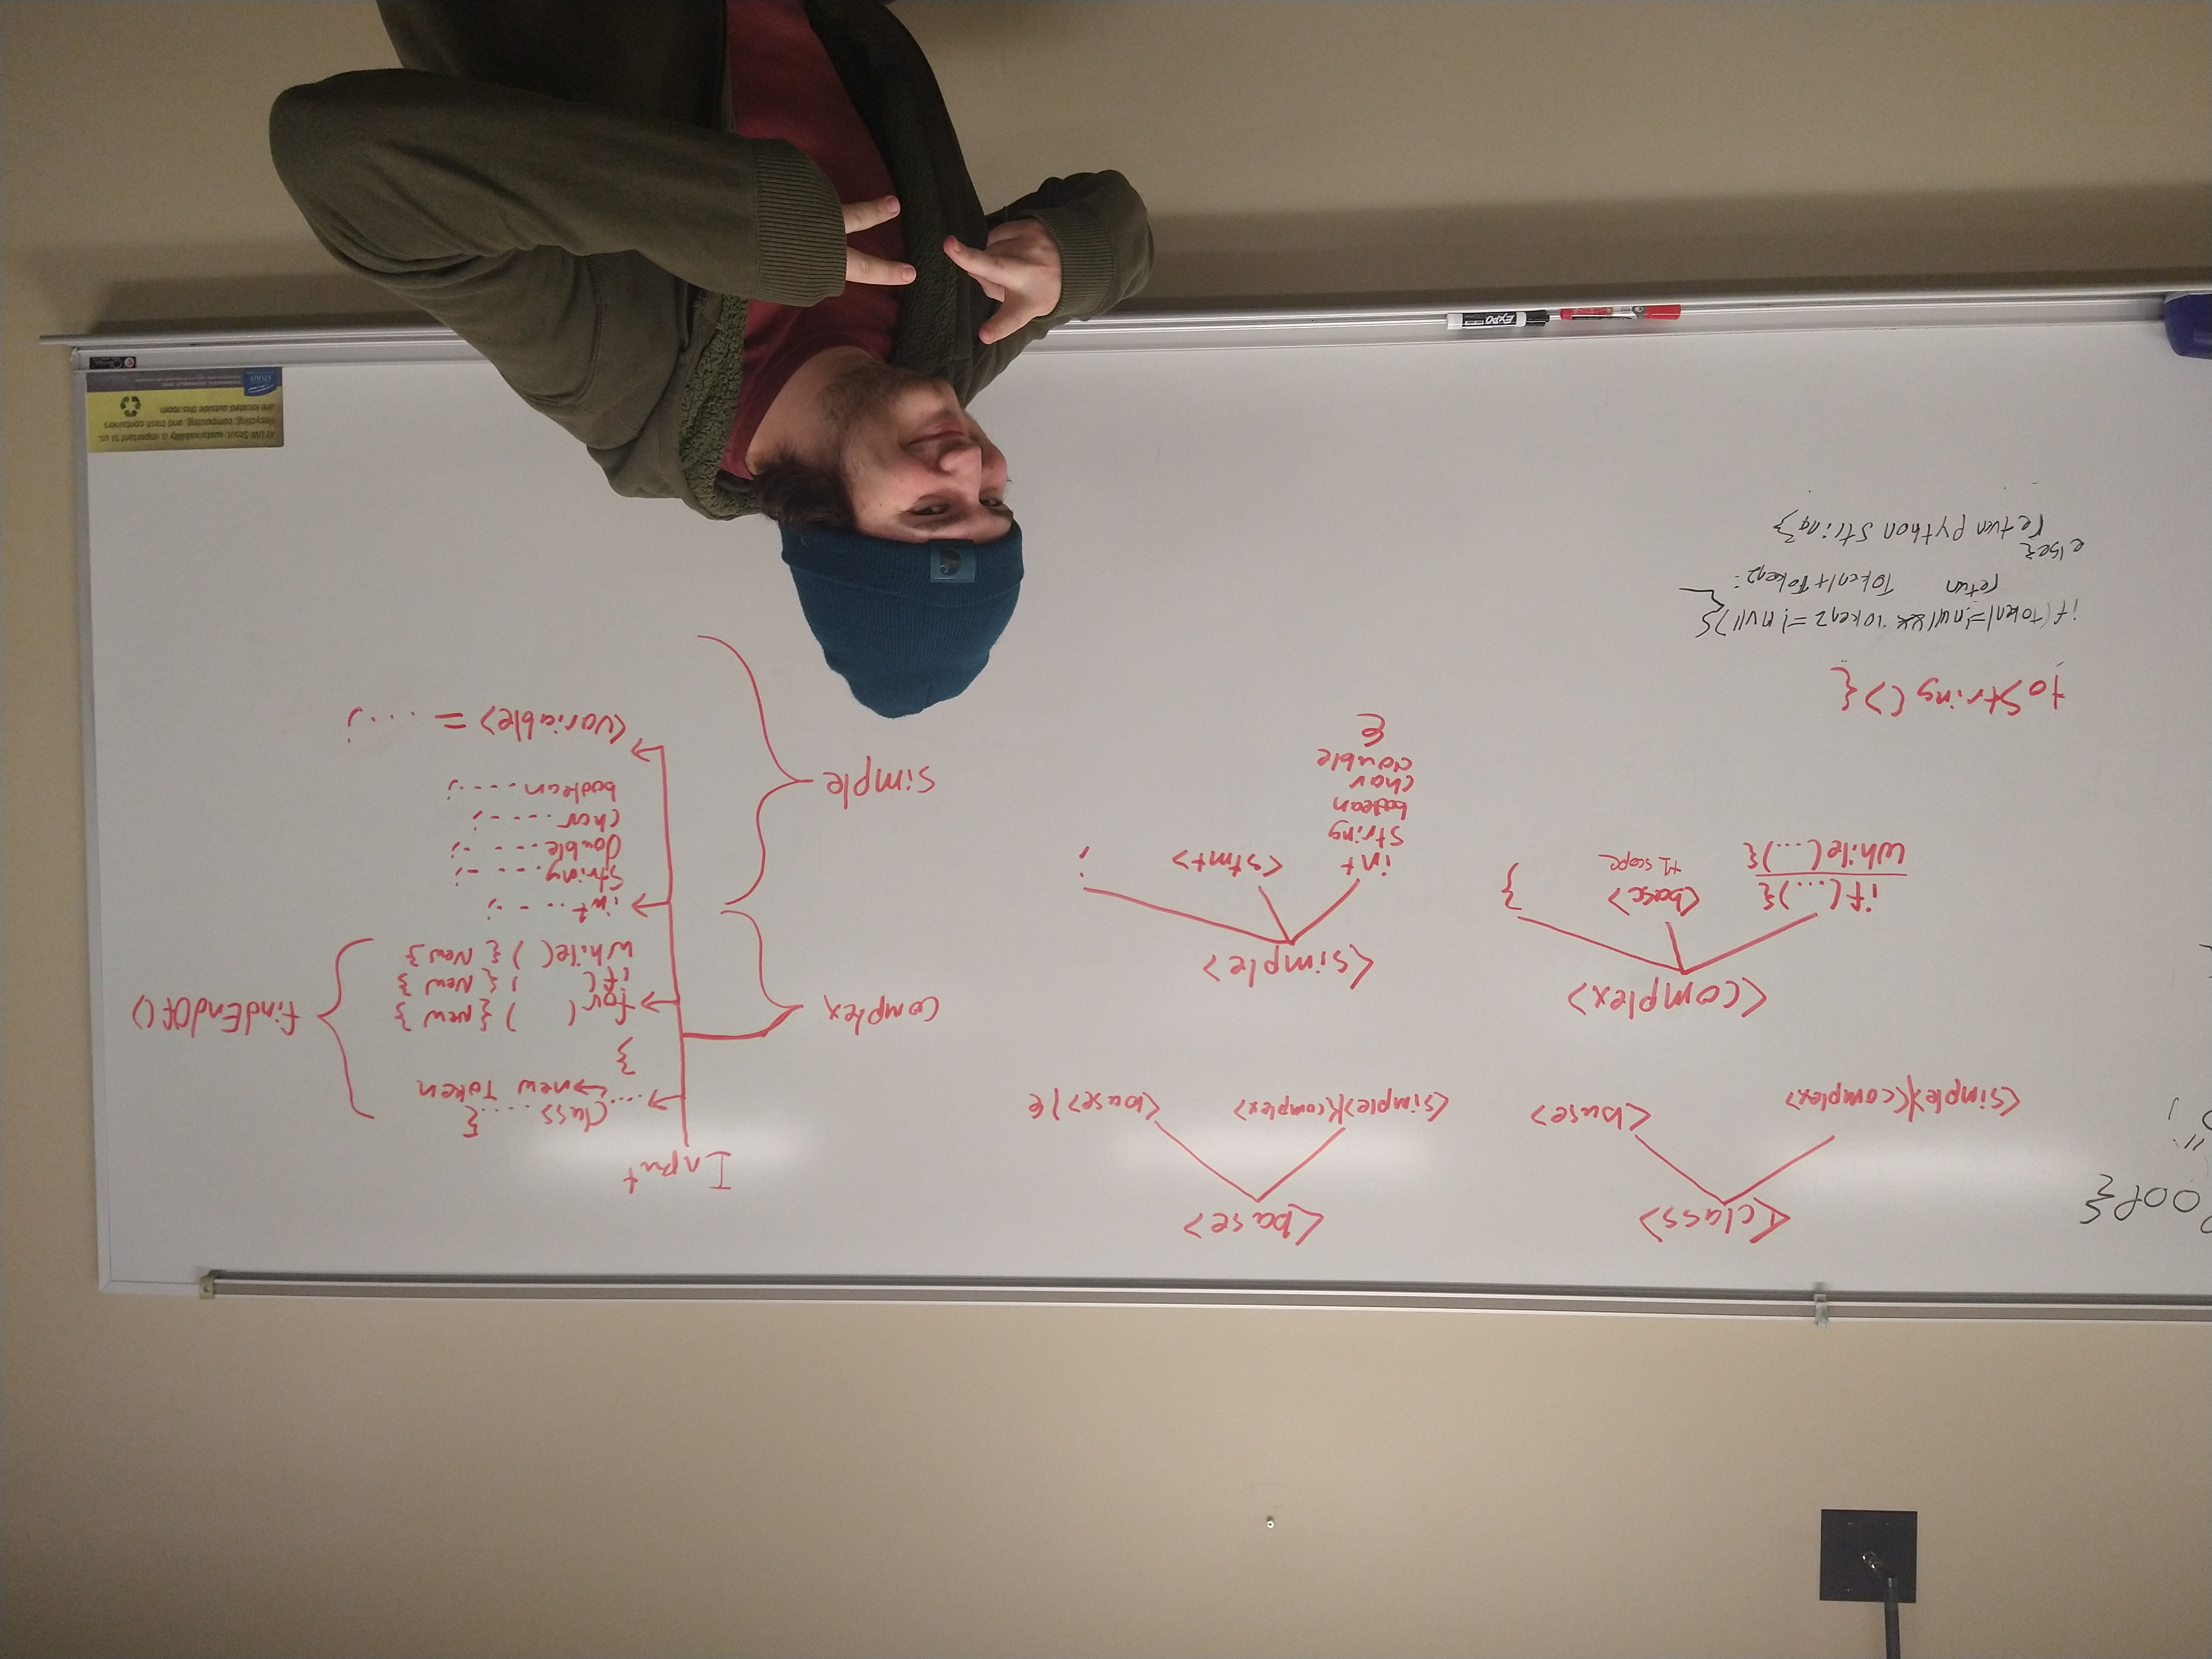 oop{
";
<class>
<simple>|<complex>
<base>
<base>
<simple>|<complex>
<base> | ε
<complex>
if(...){
while(...){
<base>
+1 scope
}
<simple>
int
String
boolean
char
double
ε
<stmt>
;
toString(){
if(token1=!null && Token2=!null){
retun Token1+Token2;
else{
return python string}
Input
...class....{
new Token
}
for( ) {New }
if( ) { New }
while( ) { New }
findEndOf()
complex
int.. - -;
String. - - -;
double. - - -;
char. - - - -;
boolean. - - -;
simple
<variable> = ....;
At UW-Stout, sustainability is important to us.
Recycling, composting, and trash containers
are located outside this room.
stout
EXPO